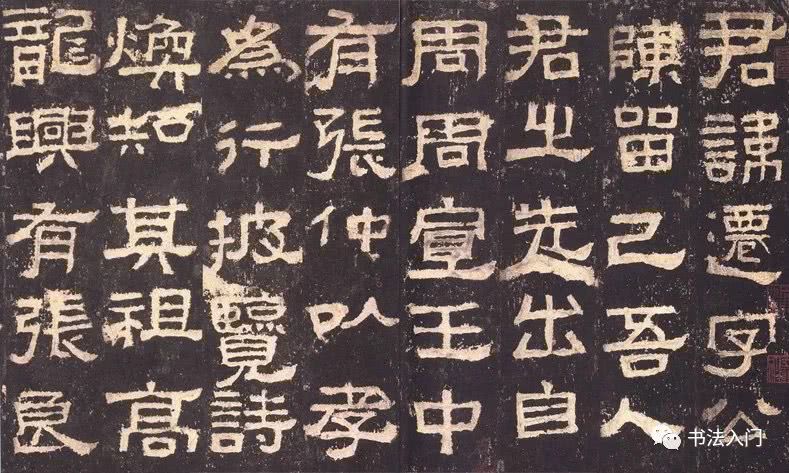 君諱遷字公
陳留己吾人
君之先出自
周周宣王中
有張仲以孝
為行披覽詩
煥知其祖高
龍興有張良
书法入门